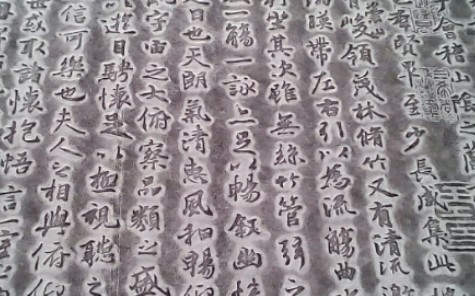 于會稽山陰
羣賢畢至少長咸集此地
山峻領茂林脩竹又有清流激
湍暎帶左右引以為流觴曲
列坐其次雖無絲竹管弦之
一觴一詠亦足以暢敘幽情
日也天朗氣清惠風和暢仰
宇宙之大俯察品類之盛
遊目騁懷足以極視聽之
信可樂也夫人之相與俯仰
或取諸懷抱悟言室